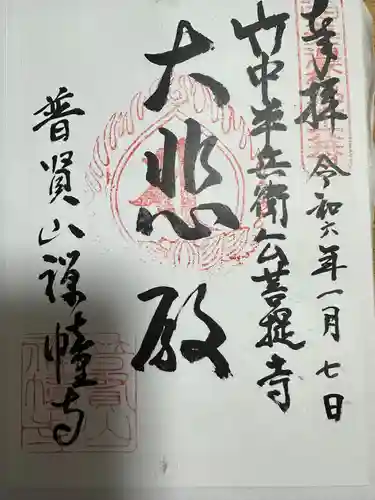 奉拝 令和六年一月七日
竹中半兵衛公菩提寺
大悲殿
普賢山禅幢寺